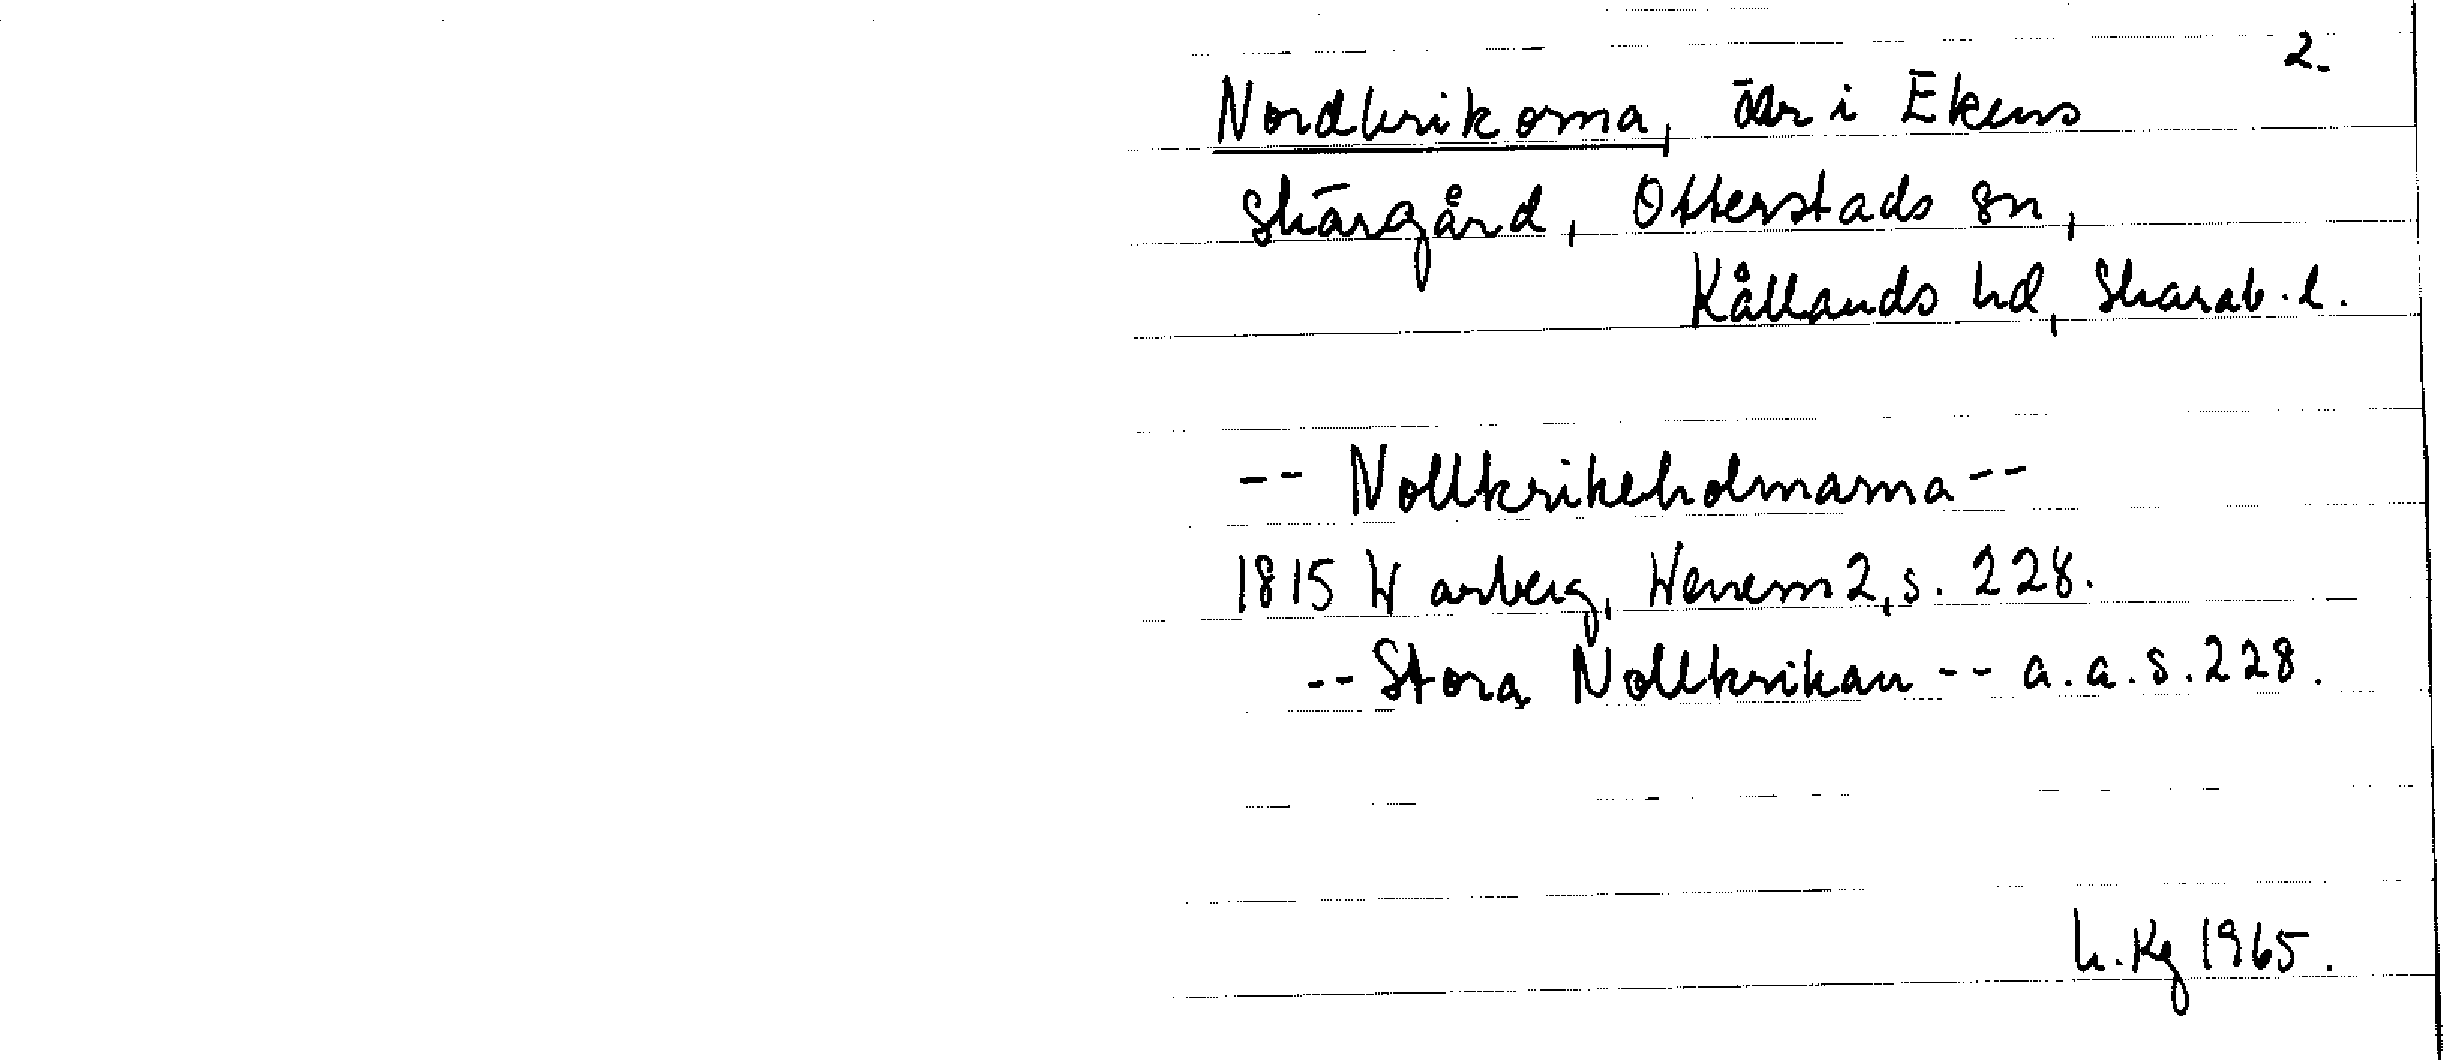 2.
Nordkrikorna, öar i Ekens
Skärgård, Otterstads sn,
Kållands hd, Skarab. l.
-- Nollkrikeholmarna --
1815 Warberg, Wenern 2, s. 228.
-- Stora Nollkrikan -- a. a. s. 228.
h. Kg 1965.